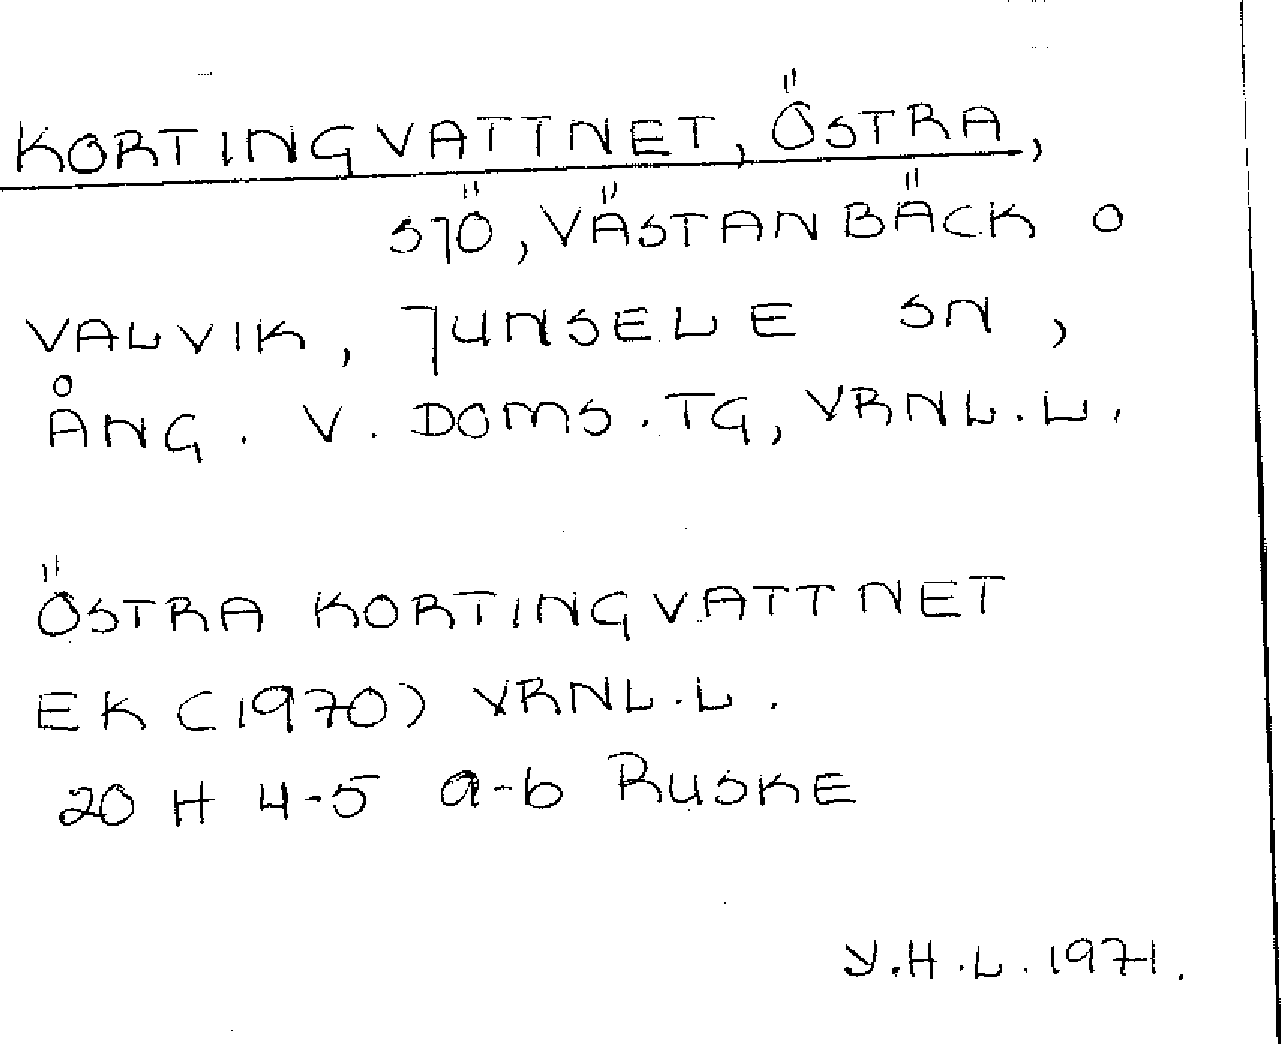 KORTINGVATTNET, ÖSTRA,
SJÖ, VÄSTANBÄCK O
VALVIK, JUNSELE SN,
ÅNG. V. DOMS. TG, VRNL. L.
ÖSTRA KORTINGVATTNET
EK (1970) VRNL. L.
20 H 4-5 a-b RUSKE
Y.H.L. 1971.